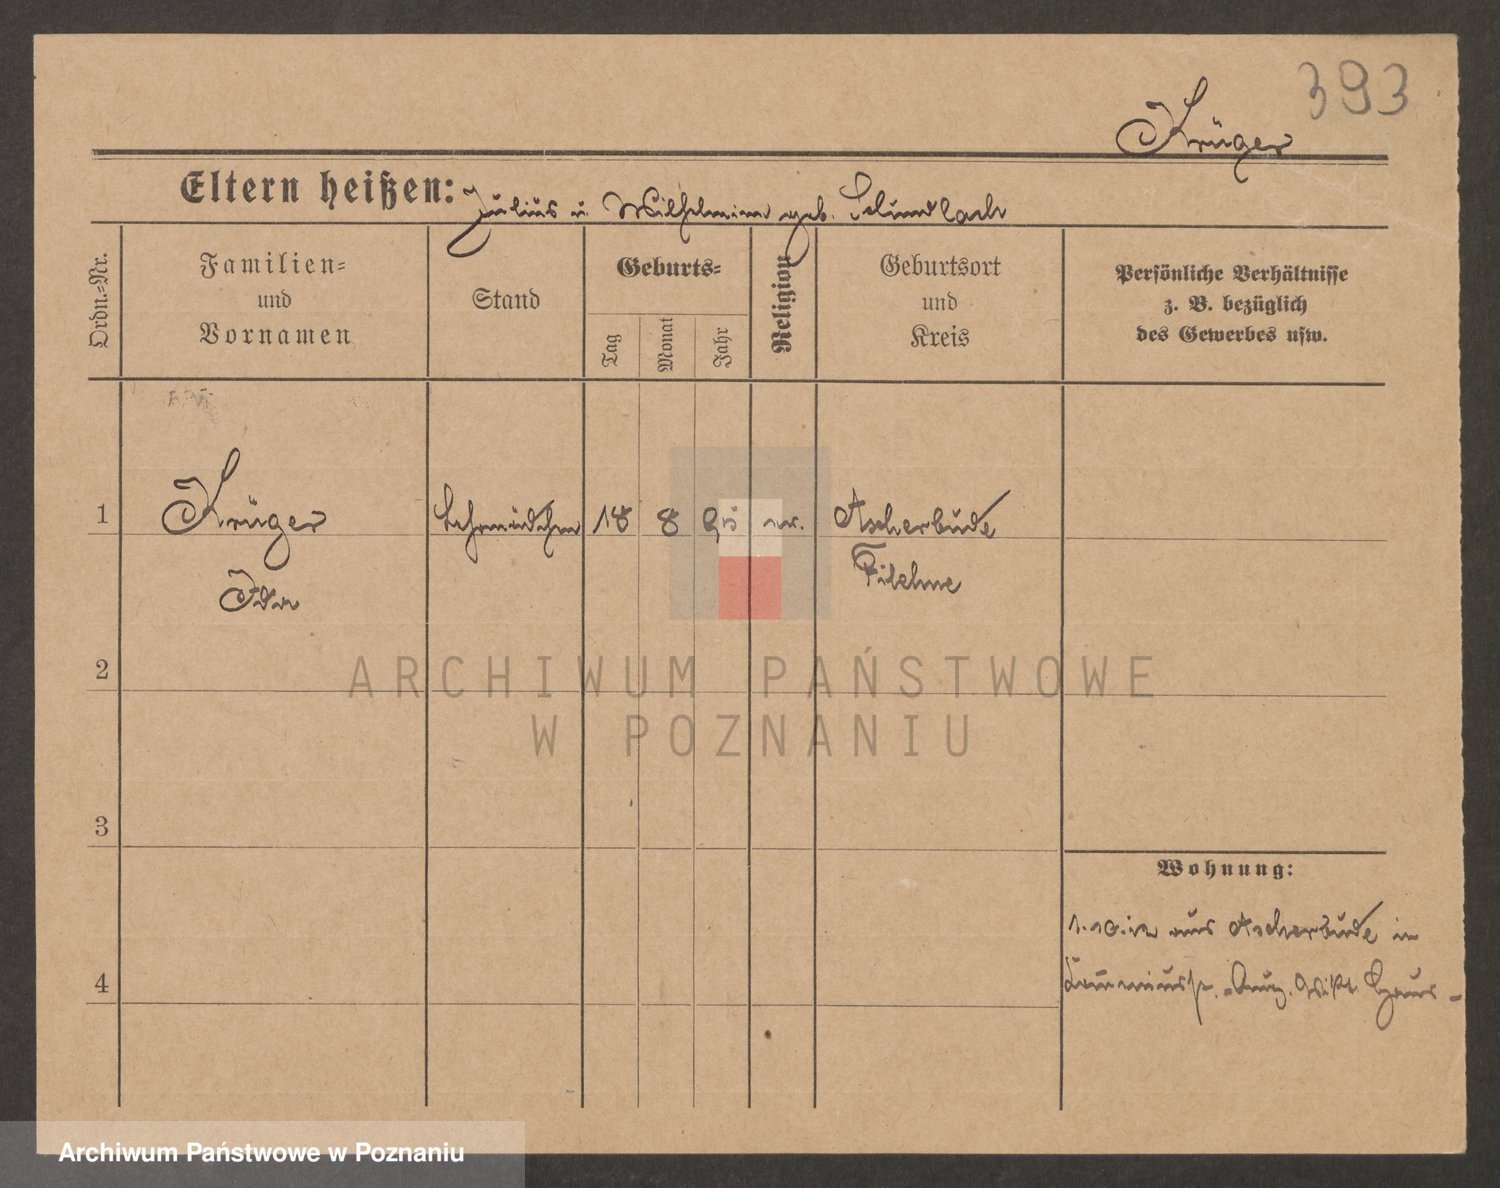 393
Krüger
Eltern heißen: Julius u. Wilhelmine geb.
Ordn.=Nr.
Familien=
und
Vornamen
Stand
Geburts=
Tag
Monat
Jahr
Religion
Geburtsort
und
Kreis
Persönliche Verhältnisse
z. B. bezüglich
des Gewerbes usw.
1 Krüger Lehrmädchen 18 8 95 ev. Ascherbude
Ida Filehne
2
3
4
Wohnung:
aus Ascherbude in
ARCHIWUM PAŃSTWOWE
W POZNANIU
Archiwum Państwowe w Poznaniu